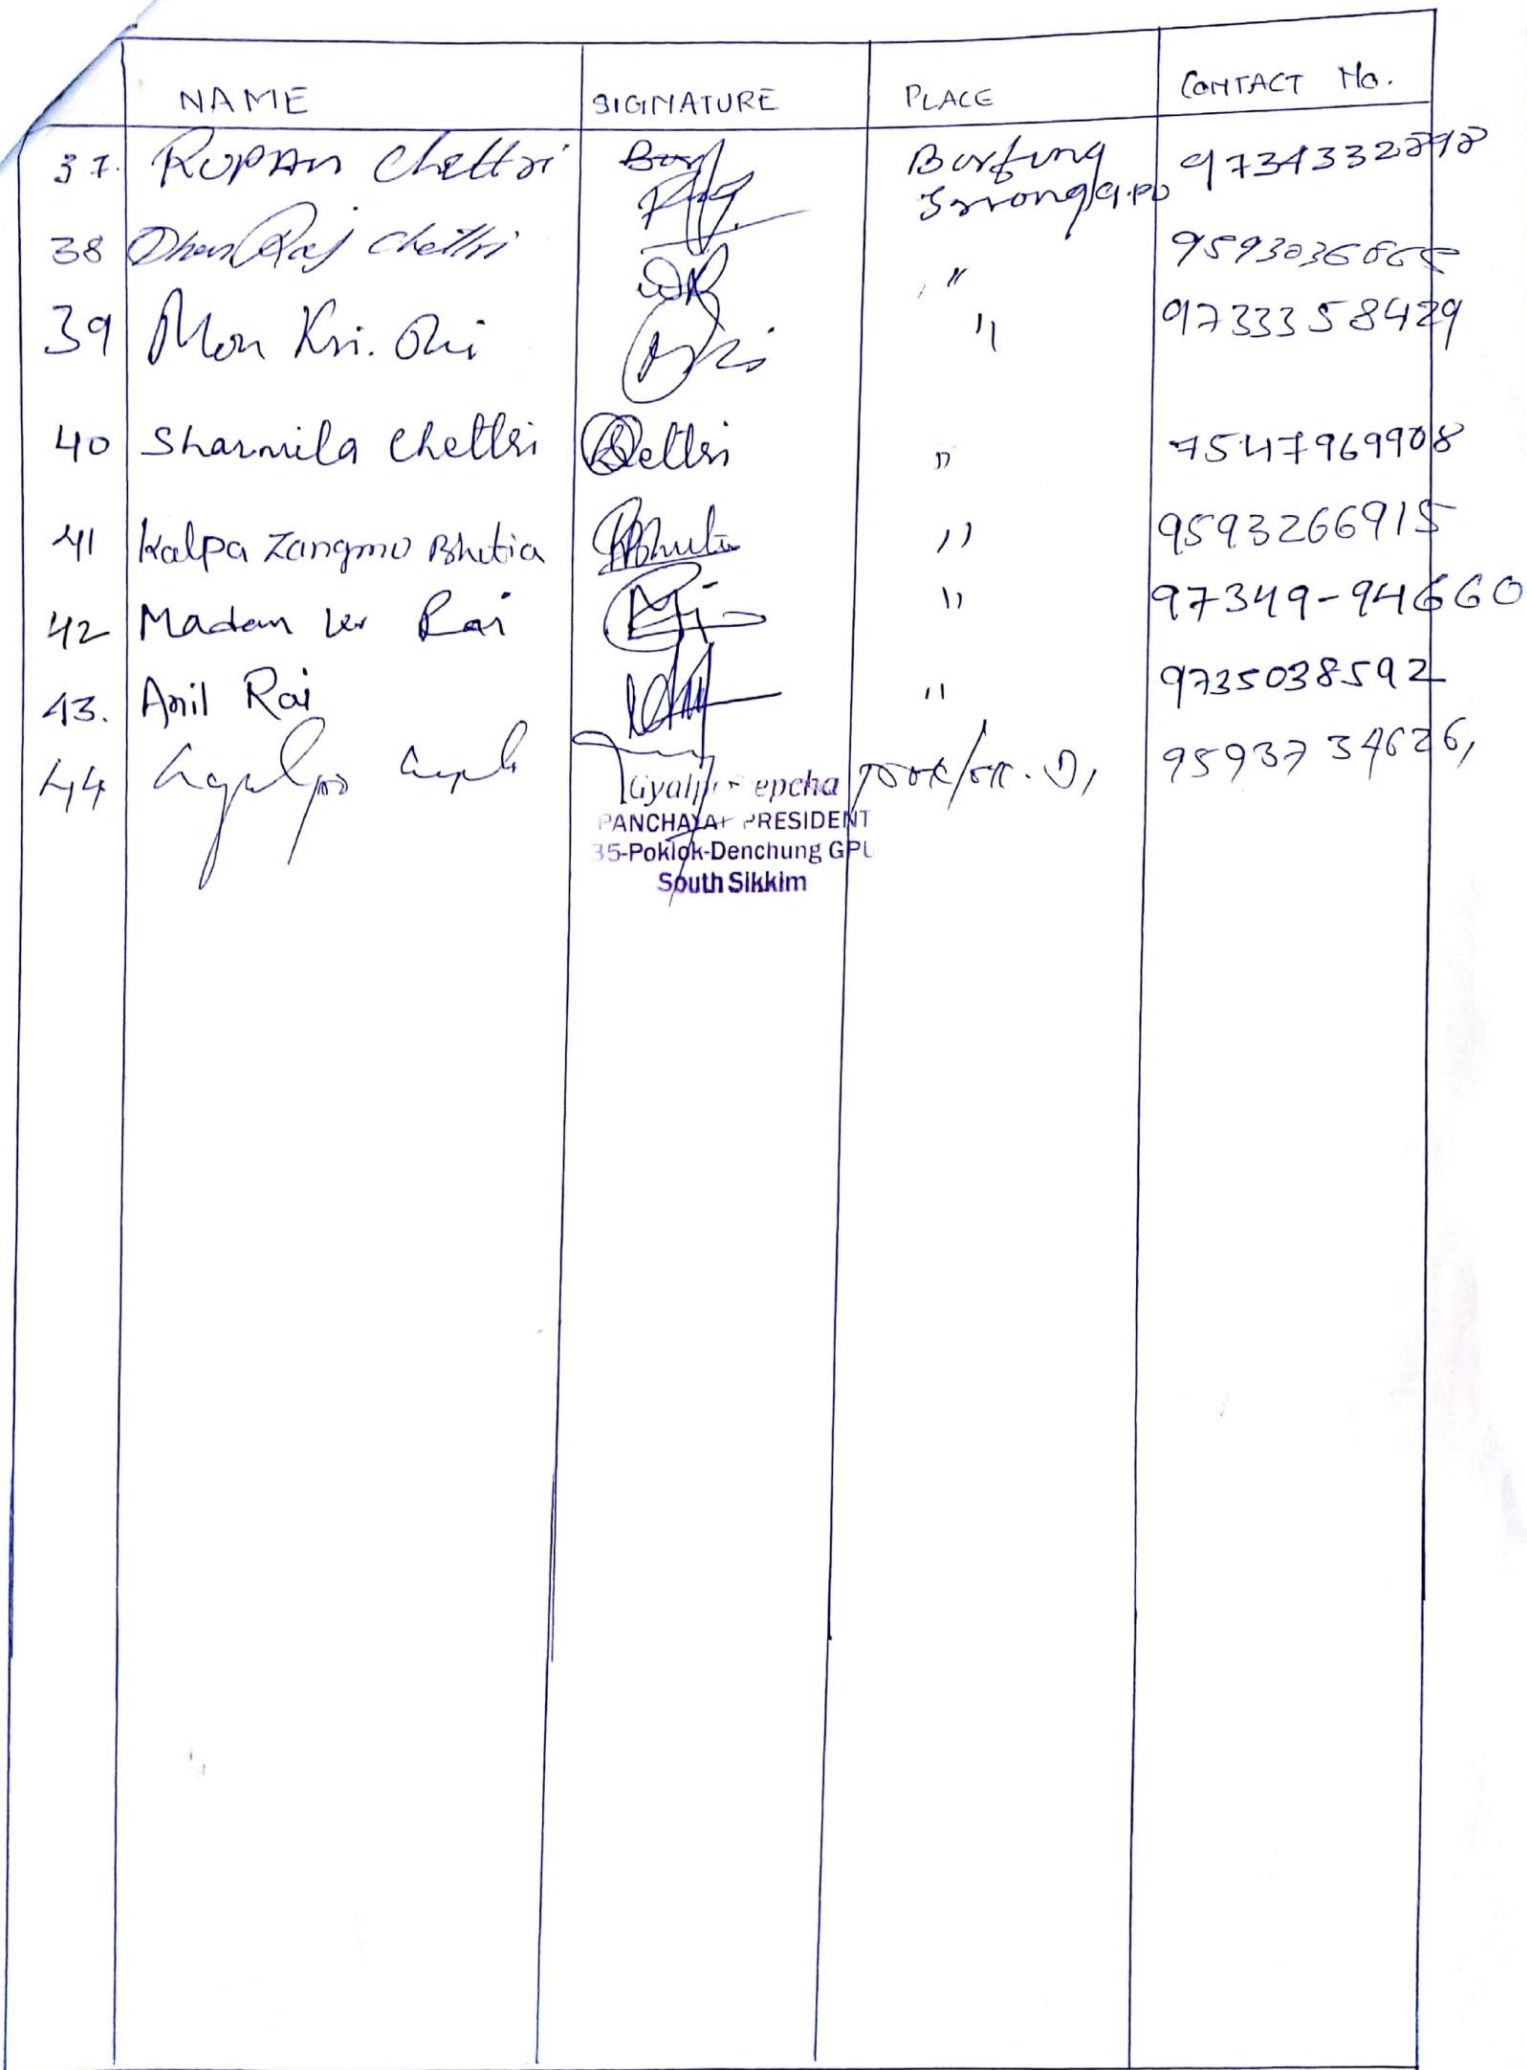 NAME SIGNATURE PLACE CONTACT No.
37. RUPAN Chettri Borfung 9734332898
38 Dhan Raj Chettri " 
39 Mon Kri. " 9733358429
40 Sharmila Chettri Chettri " 7547969908
41 Kalpa Zangmo Bhutia " 9593266915
42 Madan kr Rai " 97349-94660
43. Anil Rai " 9735038592
44 9593734626,
Gyalpo Lepcha
PANCHAYAT PRESIDENT
35-Poklok-Denchung GPU
South Sikkim